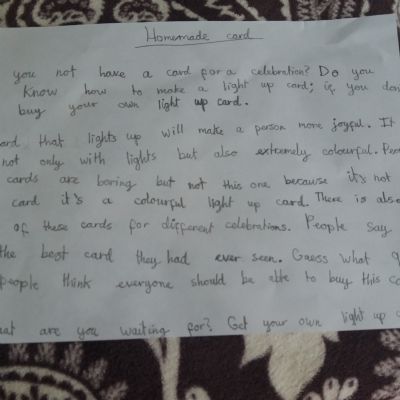 Homemade card
you not have a card for a celebration? Do you
Know how to make a light up card; if you don
buy your own light up card.
ard that lights up will make a person more joyful. It
not only with lights but also extremely colourful. Peo
cards are boring but not this one because it's not
card it's a colourful light up card. There is also
of these cards for different celebrations. People say
the best card they had ever seen. Guess what 9
people think everyone should be able to buy this ca
at are you waiting for? Get your own light up c